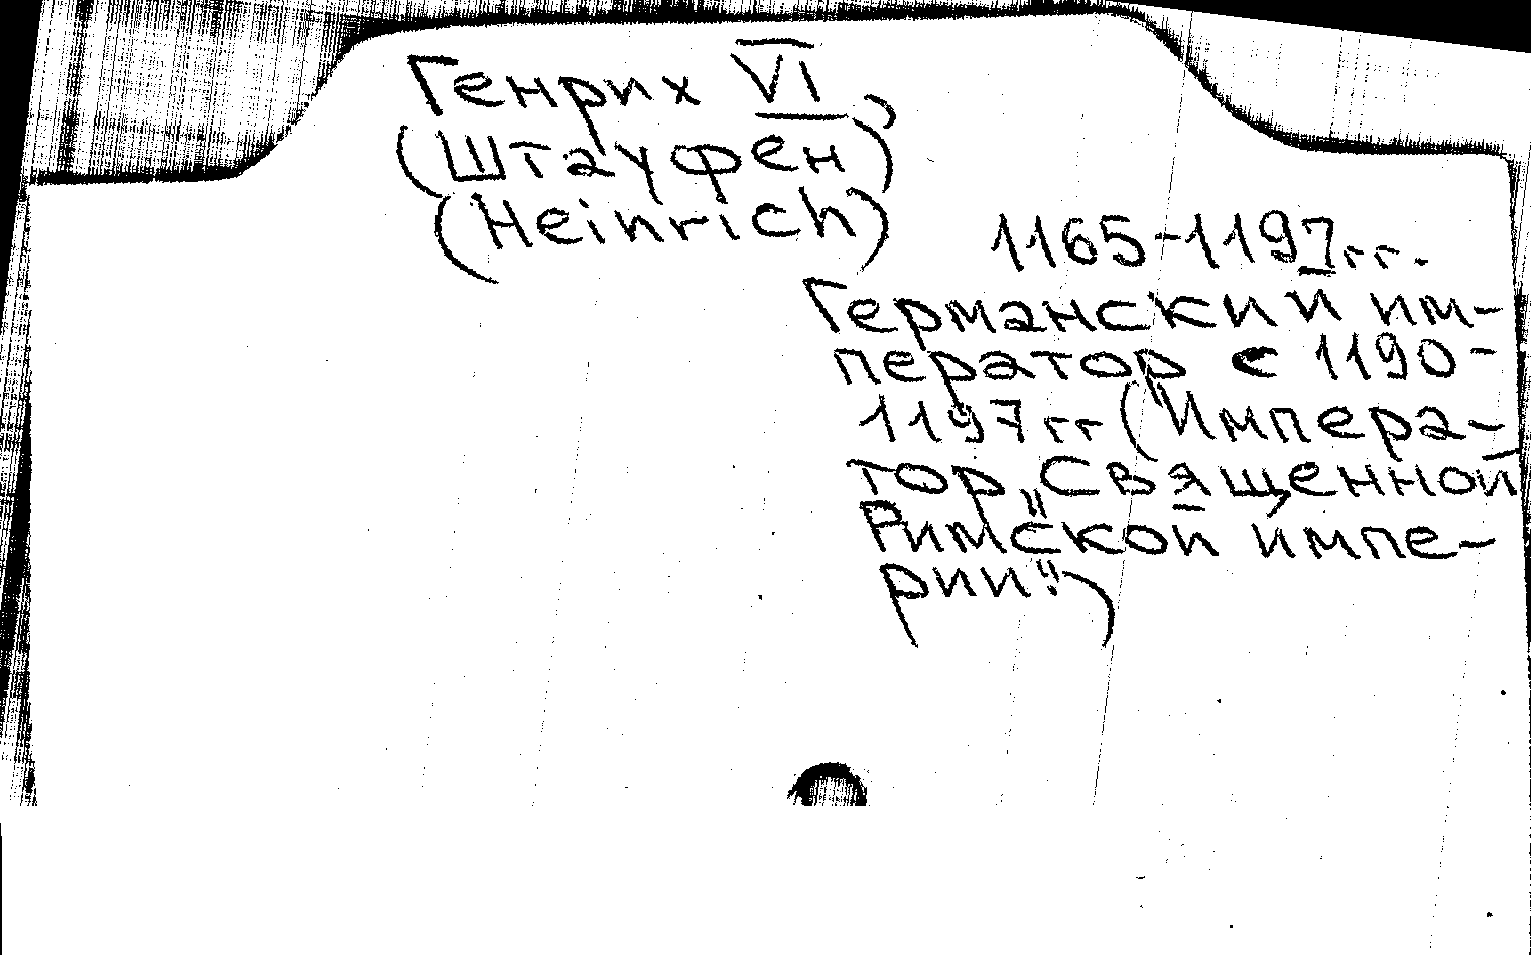 Генрих VI,
(Штауфен)
(Heinrich)
1165-1197 гг.
Германский им-
ператор с 1190-
1197 гг (Импера-
тор „Священной
Римской импе-
рии")